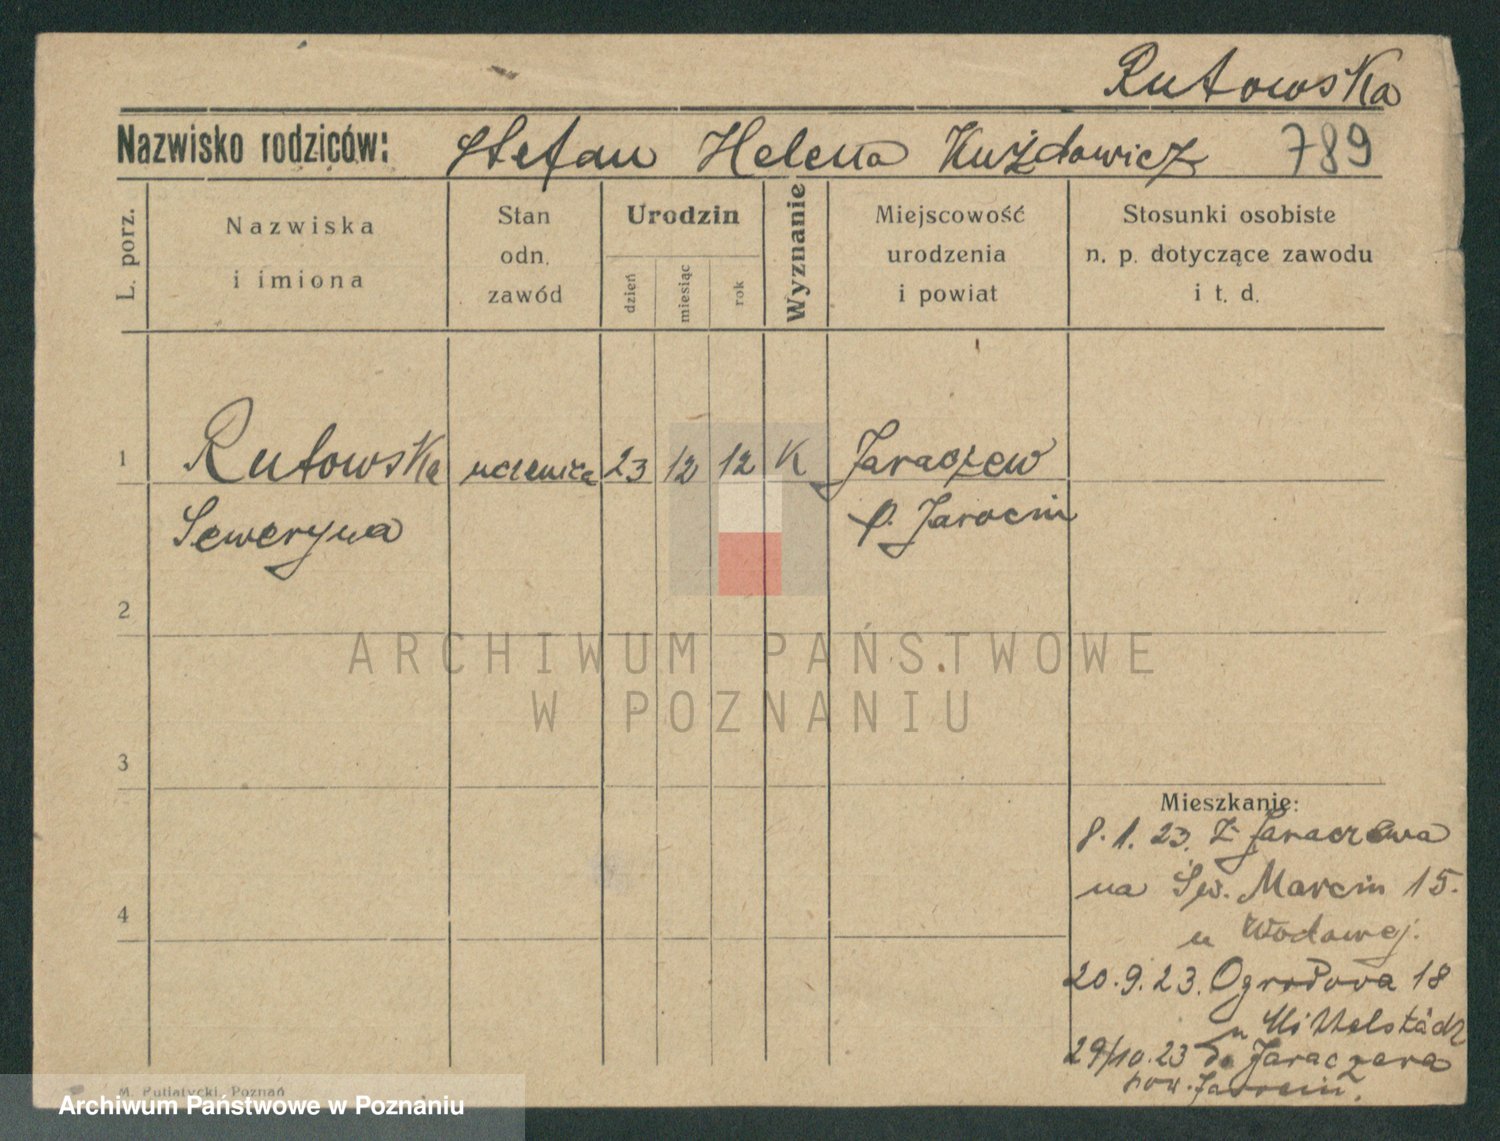 Rutowska
Nazwisko rodziców: Stefan Helena Kużdowicz 789
L. porz.
Nazwiska
i imiona
Stan
odn.
zawód
Urodzin
dzień
miesiąc
rok
Wyznanie
Miejscowość
urodzenia
i powiat
Stosunki osobiste
n. p. dotyczące zawodu
i t. d.
1 Rutowska uczenica 23 12 12 K Jaraczew
Seweryna p. Jarocin
2
3
4
ARCHIWUM PAŃSTWOWE
W POZNANIU
Mieszkanie:
8.1.23. z Jaraczewa
na Św. Marcin 15.
u Wodawej.
20.9.23. Ogrodova 18
u Mittelstädt
29/10.23 do Jaraczewa
pow. Jarocin.
M. Putiatycki, Poznań
Archiwum Państwowe w Poznaniu